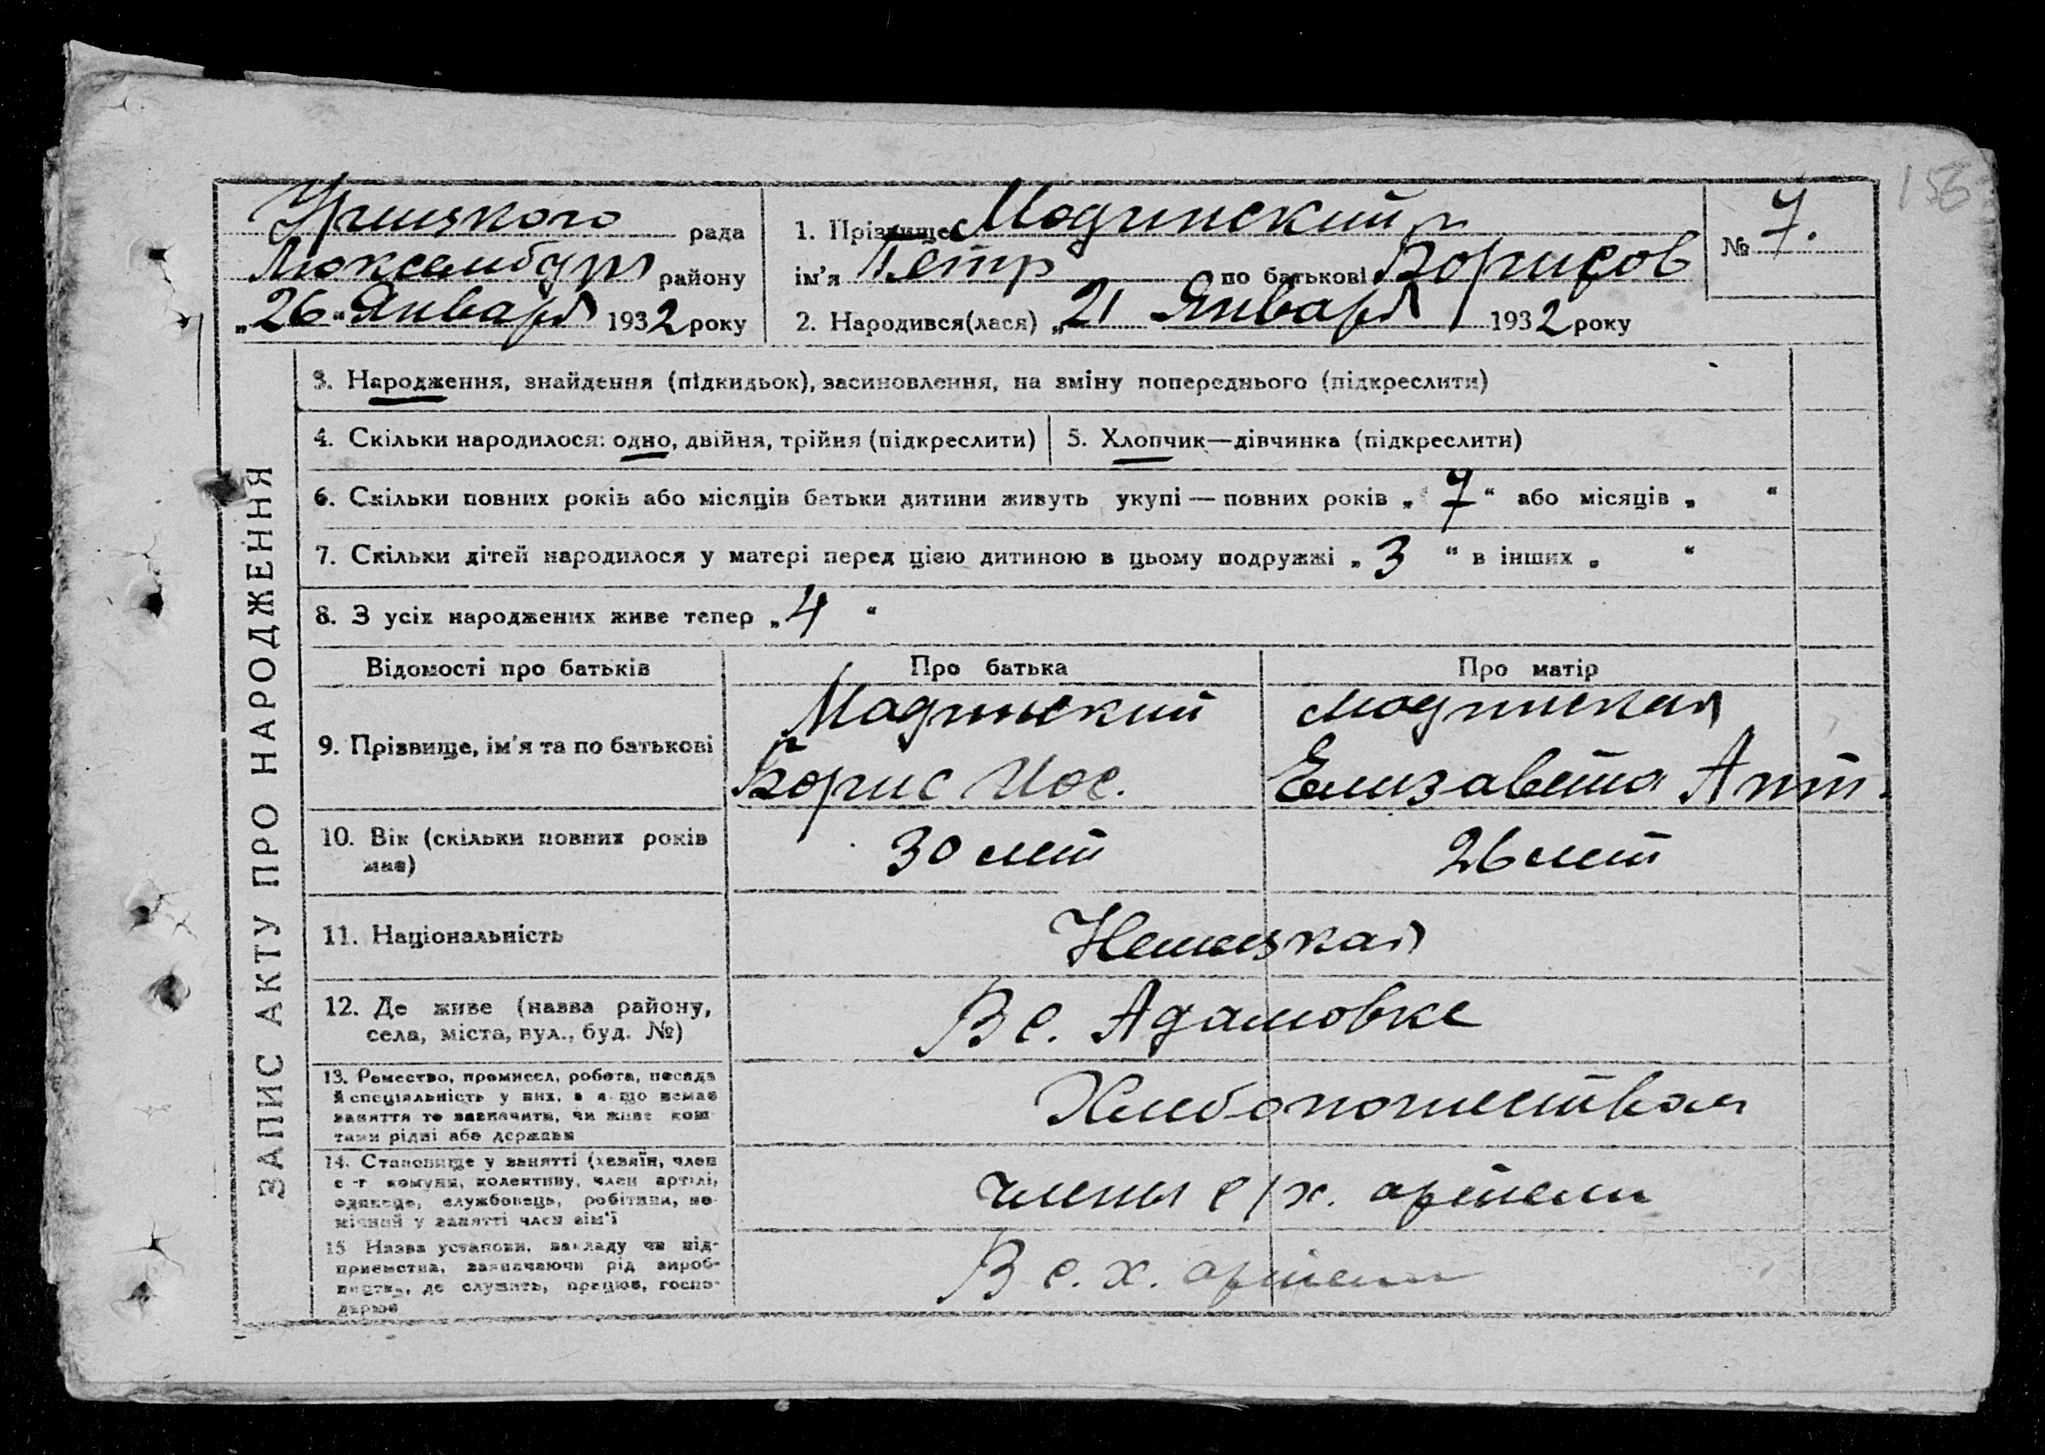 156
Урицкого рада
Люксембург району
„26“ Января 1932 року
1. Прізвище Модринский
ім'я Петр по батькові Борисов
2. Народився(лася) „21 Января 1932 року
№ 7.
ЗАПИС АКТУ ПРО НАРОДЖЕННЯ
3. Народження, знайдення (підкидьок), засиновлення, на зміну попереднього (підкреслити)
4. Скільки народилося: одно, двійня, трійня (підкреслити)
5. Хлопчик—дівчинка (підкреслити)
6. Скільки повних років або місяців батьки дитини живуть укупі — повних років „7“ або місяців „ “
7. Скільки дітей народилося у матері перед цією дитиною в цьому подружжі „3“ в інших „ “
8. З усіх народжених живе тепер „4“
Відомості про батьків Про батька Про матір
9. Прізвище, ім'я та по батькові
Модринский
Борис Иос.
Модринская
Елизавета Ант.
10. Вік (скільки повних років
має)
30 лет 26 лет
11. Національність Немецкая
12. Де живе (назва району,
села, міста, вул., буд. №)
В с. Адамовке
13. Ремество, промисел, робота, посада
й спеціяльність у них, а якщо немає
заняття то зазначити, чи живе кош-
тами рідні або держави
Хлебопашеством
14. Становище у занятті (хазяїн, член
с-г комуни, колективу, член артілі,
одинець, службовець, робітник, по-
мічний у занятті член сім'ї
члены с/х. артели
15 Назва установи, закладу чи під-
приємства, зазначаючи рід вироб-
ництва, де служить, працює, госпо-
дарює
В с.х. артели